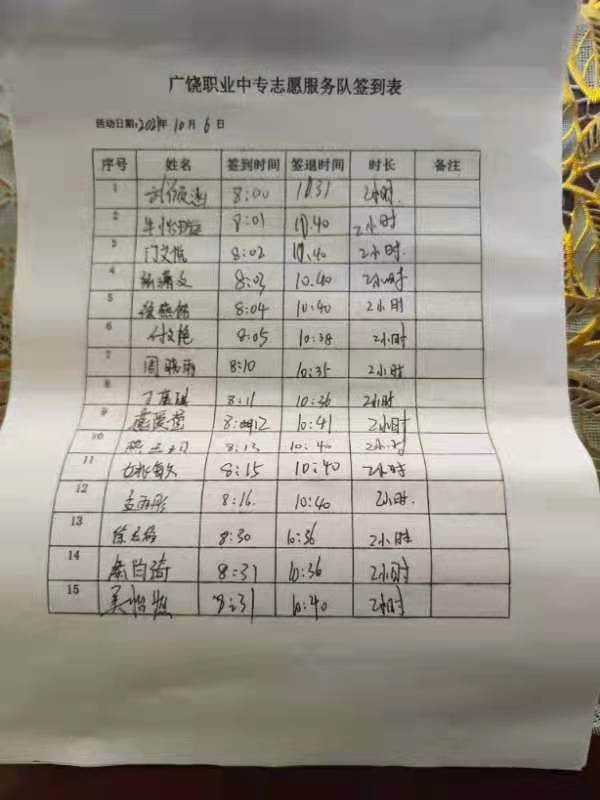 广饶职业中专志愿服务队签到表
活动日期:2021年10月6日
序号 姓名 签到时间 签退时间 时长 备注
1 8:00 10.31 2小时.
2 8:01 10.40 2小时
3 门文悦 8:02 10.40 2小时.
4 8:03 10.40 2小时
5 8:04 10:40 2小时
6 付文艳 8:05 10:38 2小时
7 周晓雨 8:10 10:35 2小时
8 8:11 10:36 2小时
9 8:12 10:41 2小时
10 8:13 10:40 2小时
11 8:15 10:40 2小时
12 孟雨彤 8:16. 10:40 2小时.
13 8:30 10:36 2小时
14 8:31 10:36 2小时
15 吴怡 8:31 10:40 2小时